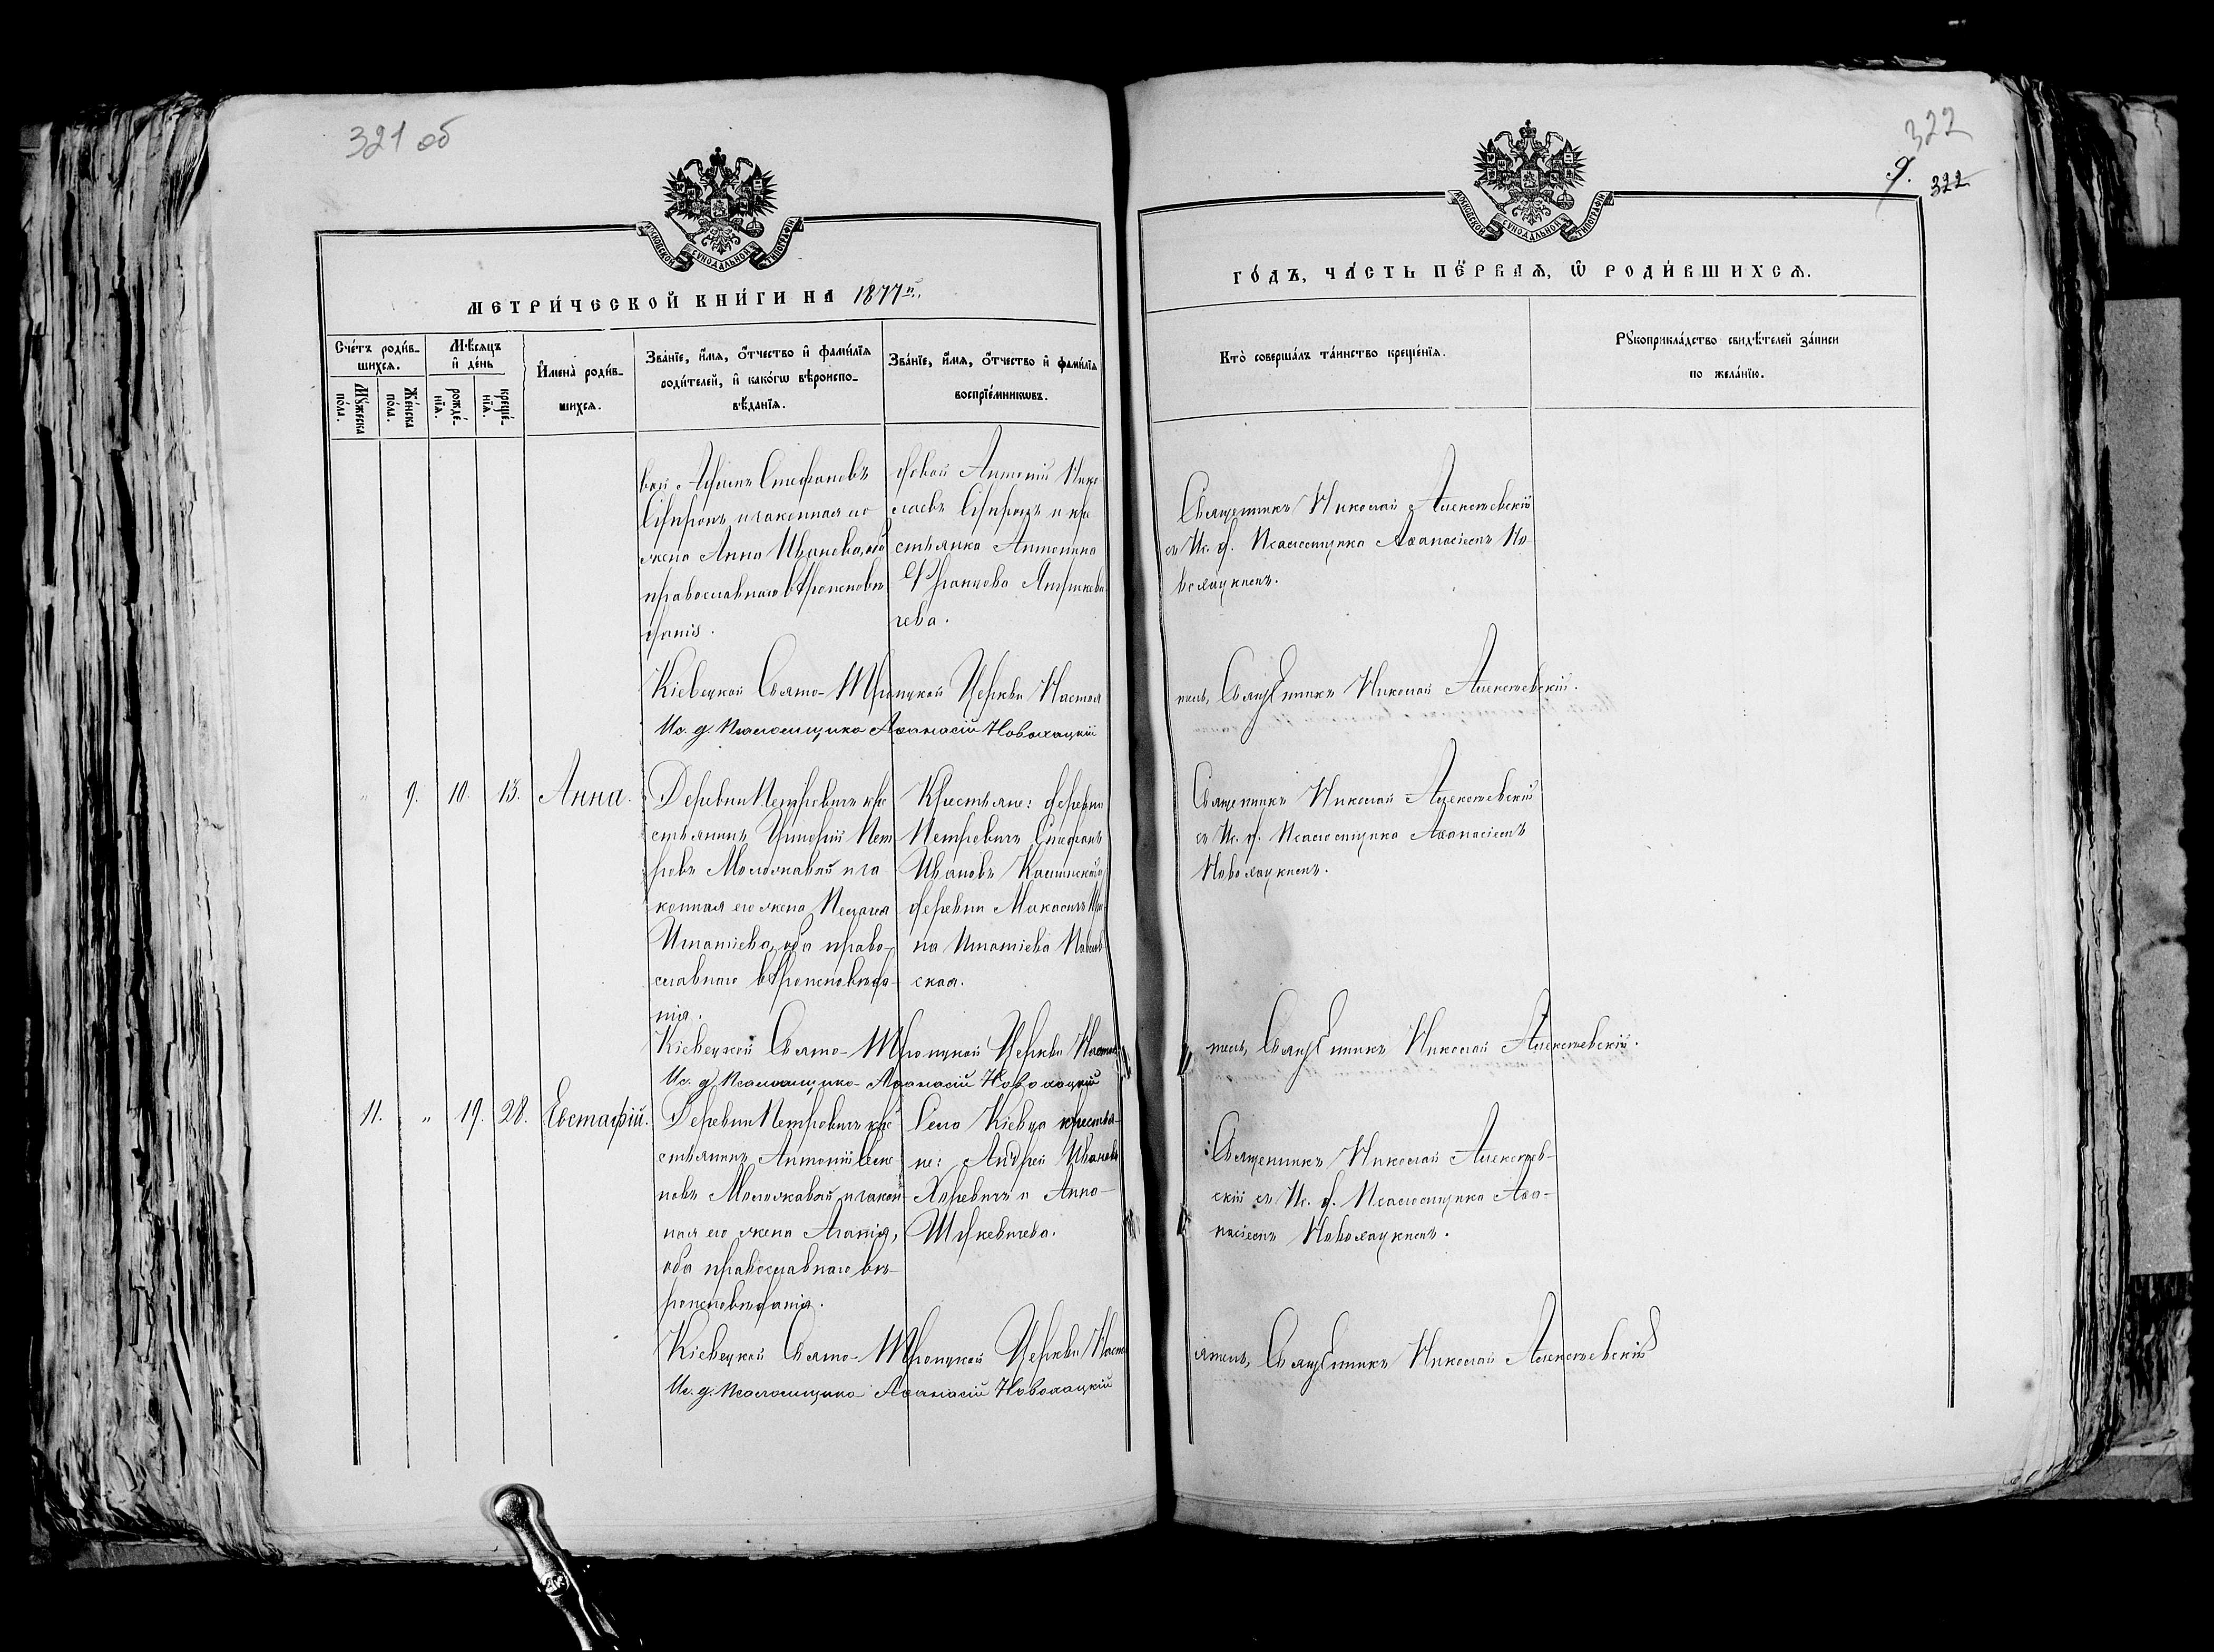 321 об
МОСКОВСКОЙ СѴНОДАЛЬНОЙ ТИПОГРАФІИ
МЕТРИ́ЧЕСКОЙ КНИ́ГИ НА 1877
Сче́тъ роди́в-
шихсѧ.
Мꙋ́жеска
по́ла.
Же́нска
по́ла.
Мѣ́сѧцъ
и҆ де́нь
рожде́-
нїѧ.
креще́-
нїѧ.
И҆мена̀ роди́в-
шихсѧ.
Зва́нїе, и҆́мѧ, ѻ҆́тчество и҆ фами́лїѧ
роди́телей, и҆ како́гѡ вѣроиспо-
вѣ́данїѧ.
Зва́нїе, и҆́мѧ, ѻ҆́тчество и҆ фами́лїѧ
воспрїе́мникѡвъ.
Стефановъ
и законная его
жена Анна Иванова, оба
православнаго вѣроисповѣ
данія.
Антоній Нико
лаевъ и кре
стьянка Антонина
Францова
чева.
Кіевецкой Свято-Троицкой Церкви Настоя
Ис. д. Псаломщика Аѳанасій Новохацкій
9. 10. 13. Анна.
Деревни Петревичъ кре
стьянинъ Григорій Пет
ровъ Моложавый и за
конная его жена Пелагея
Игнатіева, оба право-
славнаго вѣроисповѣда-
нія.
Крестьяне: деревни
Петревичъ Стефанъ
Ивановъ
деревни
на Игнатіева
ская.
Кіевецкой Свято-Троицкой Церкви Настоя
Ис. д. Псаломщика Аѳанасій Новохацкій
11. „ 19. 28. Евстафій.
Деревни Петревичъ кре
стьянинъ Антоній Семе
новъ Моложавый и закон-
ная его жена Агафія,
оба православнаго вѣ-
роисповѣданія.
Села Кіевца крестья-
не: Андрей Ивановъ
Харевичъ и Анна
Шоукевичева.
Кіевецкой Свято-Троицкой Церкви Насто
Ис. д. Псаломщика Аѳанасій Новохацкій
322
9. 322
МОСКОВСКОЙ СѴНОДАЛЬНОЙ ТИПОГРАФІИ
ГО́ДЪ, ЧА́СТЬ ПЕ́РВАѦ, Ѡ҆ РОДИ́ВШИХСѦ.
Кто̀ соверша́лъ та́инство креще́нїѧ.
Рꙋкоприкла́дство свидѣ́телей за́писи
по жела́нїю.
Священникъ Николай Алексѣевскій
съ Ис. д. Псаломщика Аѳанасіемъ Но-
вохацкимъ.
тель, Священникъ Николай Алексѣевскій.
Священникъ Николай Алексѣевскій
съ Ис. д. Псаломщика Аѳанасіемъ
Новохацкимъ.
тель, Священникъ Николай Алексѣевскій.
Священникъ Николай Алексѣев-
скій съ Ис. д. Псаломщика Аѳа-
насіемъ Новохацкимъ.
ятель, Священникъ Николай Алексѣевскій